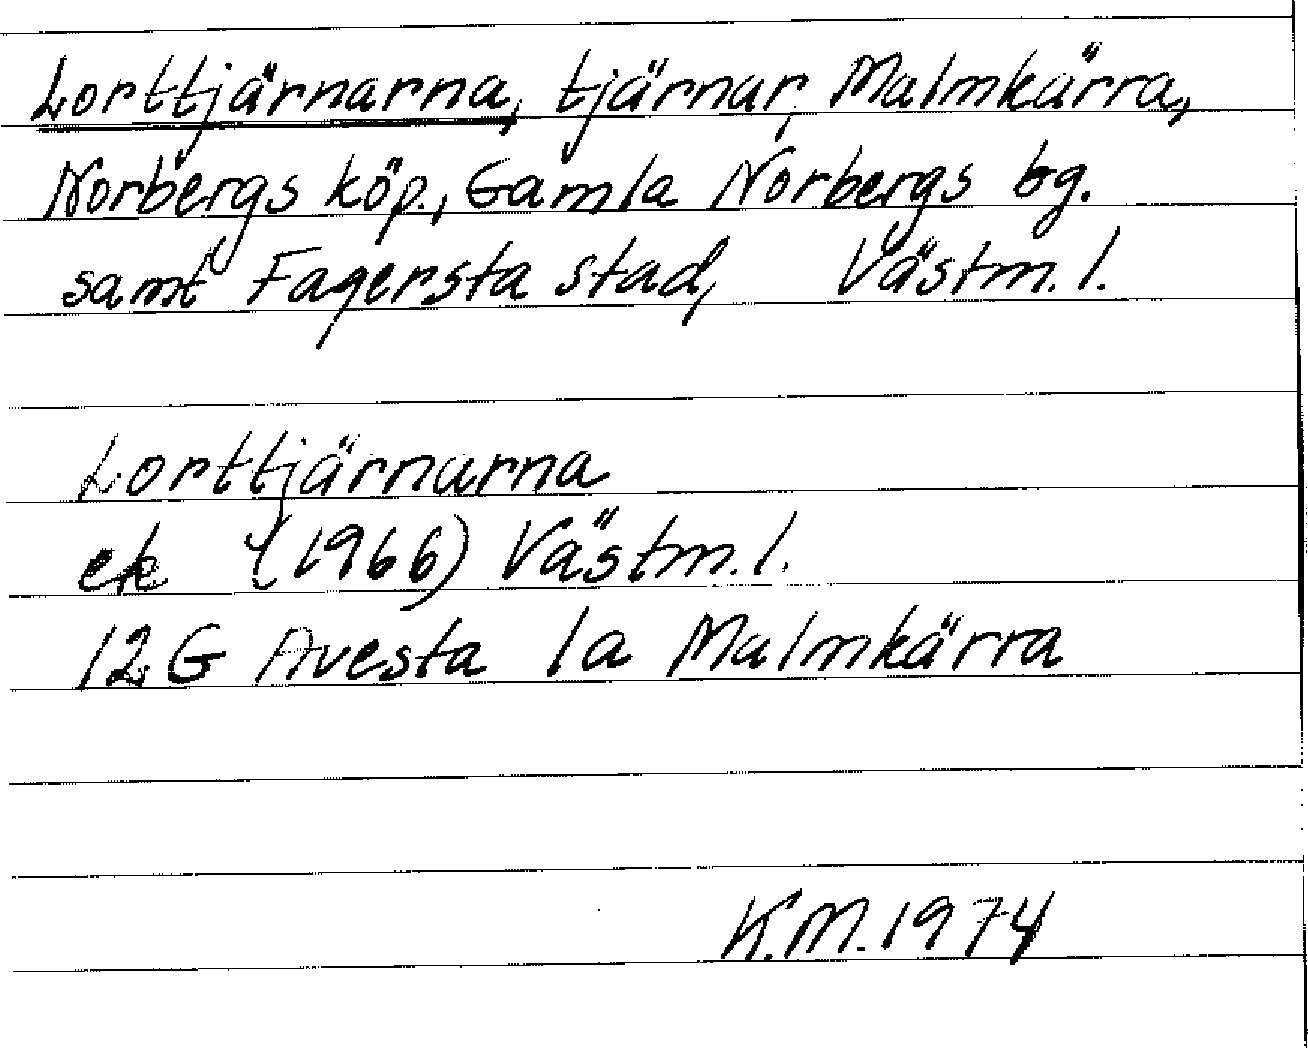 Lorttjärnarna, tjärnar, Malmkärra,
Norbergs köp., Gamla Norbergs bg.
samt Fagersta stad, Västm. l.
Lorttjärnarna
ek (1966) Västm. l.
12 G Avesta 1a Malmkärra
K.M. 1974